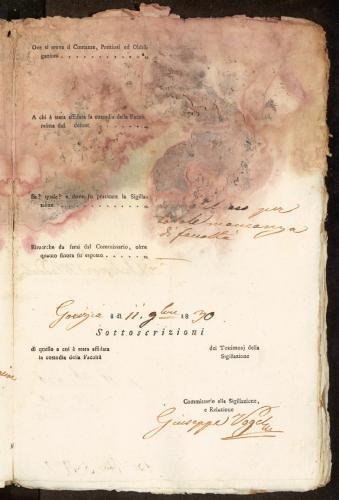 Ove si trova il Contante, Preziosi ed Obbli-
gazioni . . . . . . . . . . . .
A chi è stata affidata la custodia della Facol-
tà
del defont. . . . . . . . . .
Se? quale? e dove fu praticata la Sigilla-
zione . . . . . . . . . . . .
no per
totale mancanza
di facoltà
Rimarche da farsi dal Commissario, oltre
quanto finora fu esposto . . . . . . .
Gorizia li 11. 9bre 1830
Sottoscrizioni
di quello a cui è stata affidata
la custodia della Facoltà
dei Testimonj della
Sigillazione
Commissario alla Sigillazione,
e Relazione
Giuseppe Vogel